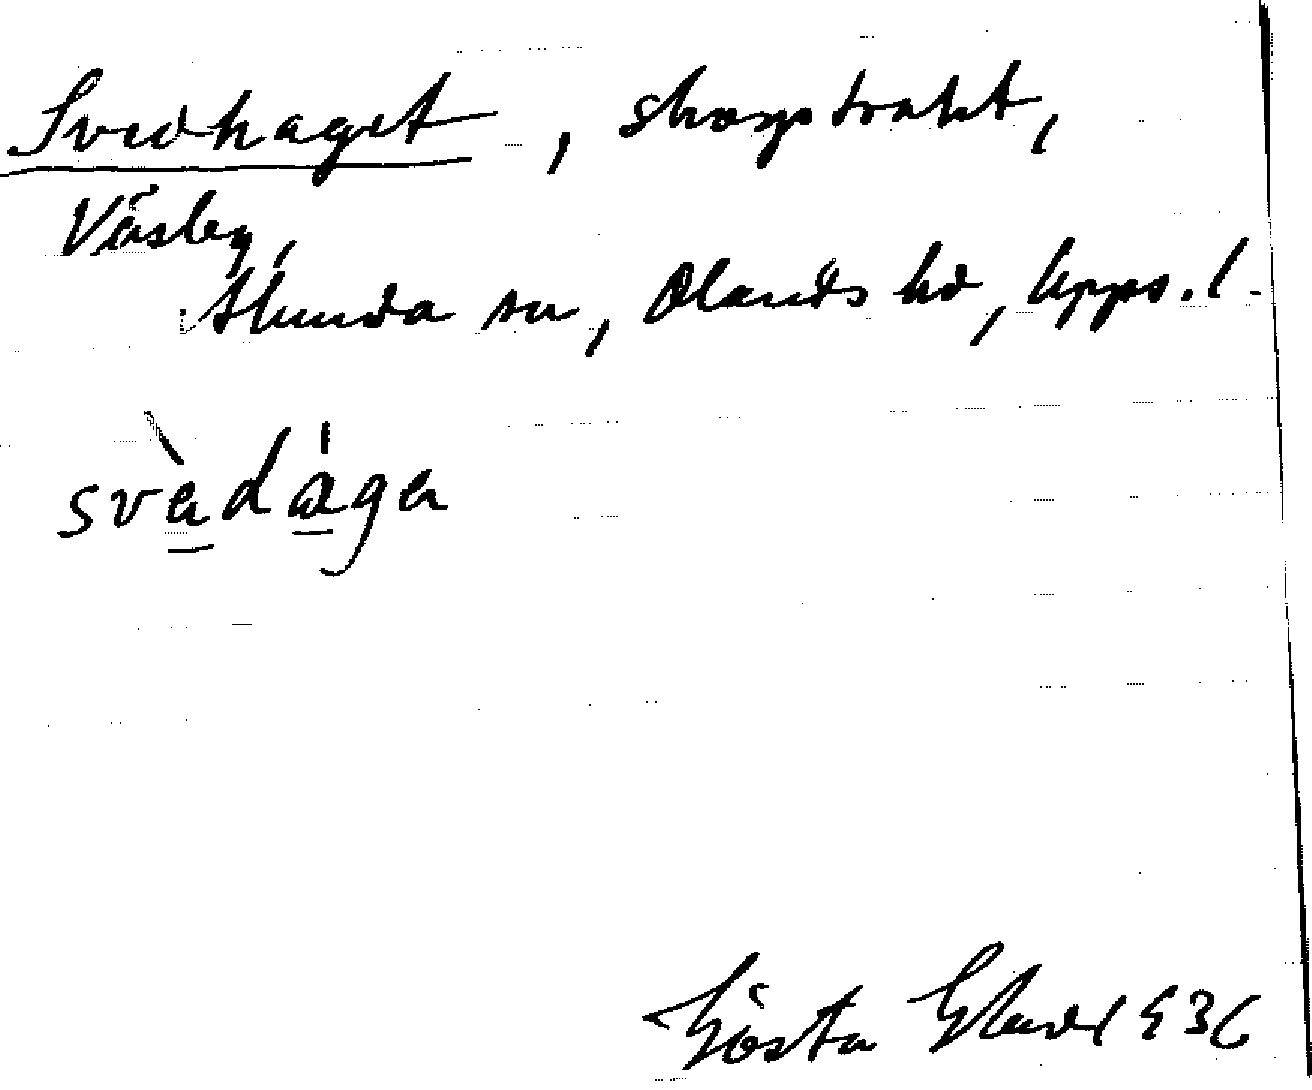 Svedhaget, skogstrakt,
Väsby,
Alunda sn, Olands hd, Upps. l.
svèdága
Gösta 1936